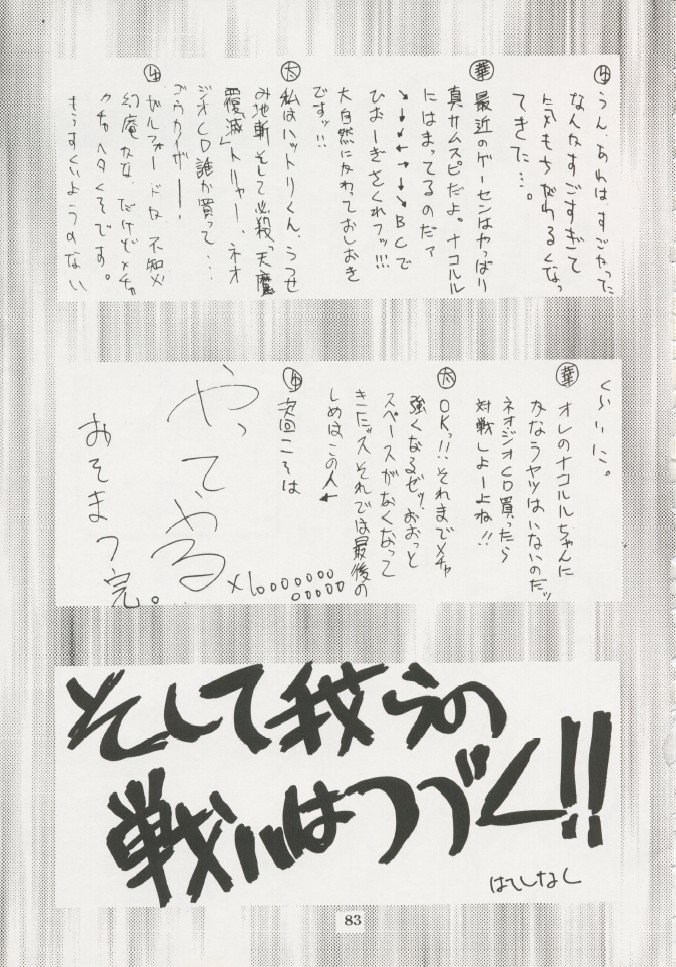 うん、あれは、すごかった
なんかすごすぎて
気もちがわるくなっ
てきた…。
華 最近のゲーセンはやっぱり
真サムスピだよ。ナコルル
にはまってるのだァ
→↓↙←→↓↘BCで
ひおーぎさくれフッ!!!
大自然にかわっておしおき
ですッ!!
大 私はハットリくん、うつせ
み地斬そして必殺「天魔
覆滅」トリャー、ネオ
ジオCD誰か買って…
ゴウカイザー――!
ガルフォードな 不知火
幻庵かな、だけどメチャ
クチャヘタくそです。
もうすくいようのない
くらいに。
華 オレのナコルルちゃんに
かなうヤツはいないのだッ
ネオジオCD買ったら
対戦しよーよね!!
大 OKっ!!それまでメチャ
強くなるぜッ、おおっと
スペースがなくなって
きたッスそれでは最後の
しめはこの人←
次回こそは
やってやる
×1000000000000
おそまつ完。
そして我らの
戦いはつづく!!
はてしなし
83